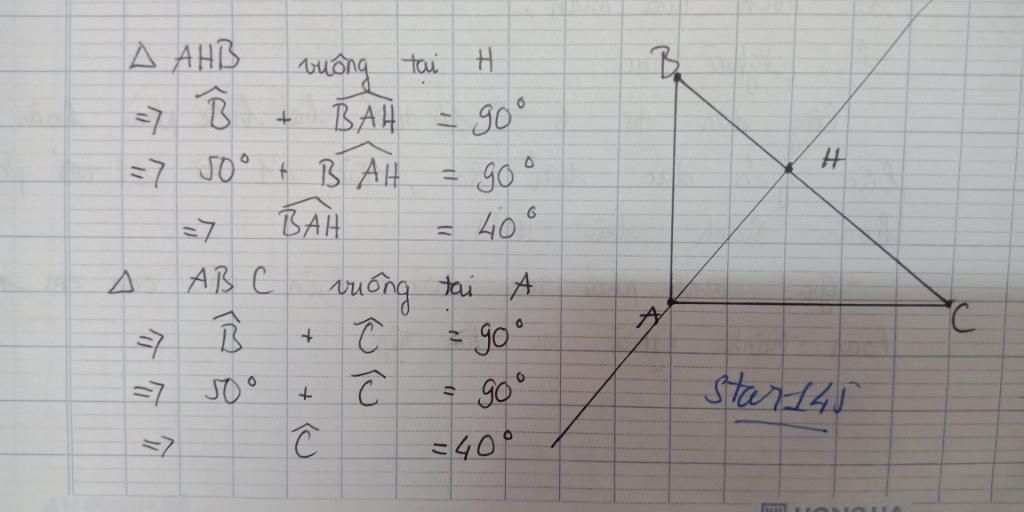 Δ AHB vuông tại H
=> B̂ + B͡AH = 90°
=> 50° + B͡AH = 90°
=> B͡AH = 40°
Δ ABC vuông tại A
=> B̂ + Ĉ = 90°
=> 50° + Ĉ = 90°
=> Ĉ = 40°
B
H
A
C
star145
HONGHA